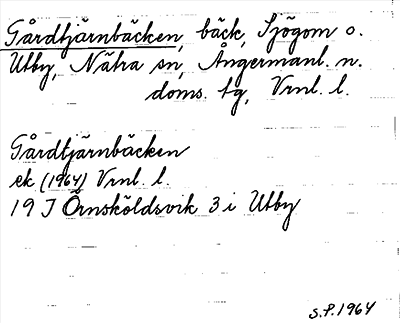 Gårdtjärnbäcken, bäck, Sjögom o.
Utby, Nätra sn, Ångermanl. n.
doms. tg, Vrnl. l.
Gårdtjärnbäcken
ek (1964) Vrnl. l.
19 J Örnsköldsvik 3 i Utby
S.P. 1964